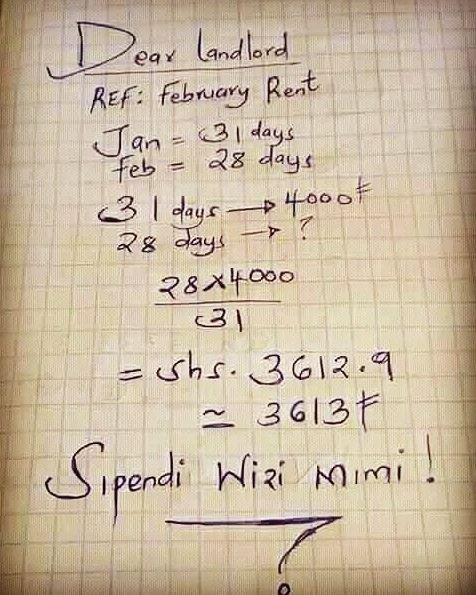 Dear landlord
REF: February Rent
Jan = 31 days
Feb = 28 days
31 days → 4000/=
28 days → ?
28×4000
31
= shs. 3612.9
≃ 3613/=
Sipendi Wizi Mimi!
?